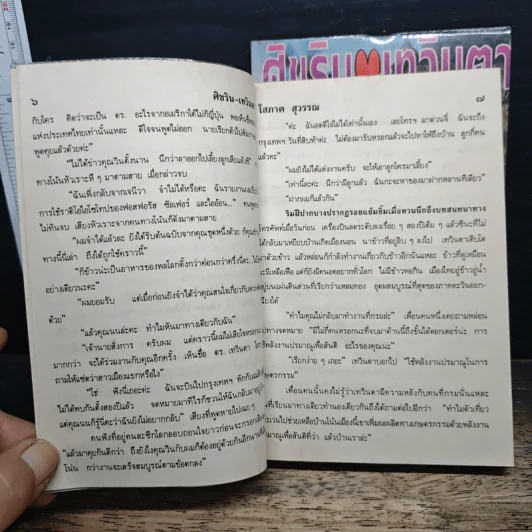 ศิขริน เทวินตา
๖
ศิขริน-เทวินตา
กับใคร คิดว่าจะเป็น ดร. อะไรจากอเมริกาได้ไม่ก็ญี่ปุ่น พอเห็นชื่อ
แห่งประเทศไทยเท่านั้นแหละ ดีใจจนพูดไม่ออก นายเรียกตัวไปสัม
พูดคุยแล้วด้วยค่ะ"
"ไม่ได้ข่าวคุณวินตั้งนาน นึกว่าลาออกไปเลี้ยงลูกเสียแล้วซี"
ทางโน้นหัวเราะหึ ๆ มาตามสาย เมื่อกล่าวจบ
"ฉันเพิ่งกลับจากเจนีวา จำไม่ได้หรือคะ ฉันรายงานเรื่อง
การใช้ราดิโอไอโซโทปของฟอสฟอรัส ซัลเฟอร์ และไอออิน..."
ไม่ทันจบ เสียงหัวเราะจากคนทางโน้นก็ดังมาตามสาย
"ผมจำได้แล้วละ ยังได้รับต้นฉบับจากคุณชุดหนึ่งด้วย
ทางนี้นี่เล่า ถึงได้ถูกใช้คราวนี้"
"ก็ข้าวน่ะเป็นอาหารของพลโลกตั้งกว่าค่อนกว่าครึ่งนี่คะ
อย่างเดียวนะคะ"
"ผมยอมรับ แต่เมื่อก่อนยังจำได้ว่าคุณสนใจเกี่ยวกับ
ด้วย"
"แล้วคุณนนล่ะคะ ทำไมหันมาทางเดียวกับฉัน"
"เจ้านายสั่งการ ครับผม แต่คราวนี้ผมไม่เสียใจหรอก
มากกว่า จะได้ร่วมงานกับคุณอีกครั้ง เห็นชื่อ ดร. เทวินตา
ถามให้แซ่ดว่าสาวเมืองแขกหรือไง"
"โธ่ ฟังนี่เถอะค่ะ ฉันจะบินไปกรุงเทพฯ พักกับ
ไม่ได้พบกันตั้งสองปีแล้ว จดหมายมาทีไรก็ชวนให้ฉันกลับ
แต่คุณนนก็รู้นี่คะว่าฉันยังไม่อยากกลับ" เสียงที่พูดหายไปเฉย ๆ
คนฟังที่อยู่คนละซีกโลกลอบถอนใจยาวก่อนจะกรอก
"แล้วมาคุยกันดีกว่า ถึงยังไงคุณวินกับผมก็ต้องอยู่ด้วยกันอีกนาน
โน่น กว่างานจะเสร็จสมบูรณ์ตามข้อตกลง"
โสภาค สุวรรณ
๗
"ค่ะ ฉันอดดีใจไม่ได้เท่านั้นเอง เลยโทรฯ มาด่วนจี๋ ฉันจะถึง
กรุงเทพฯ วันที่สิบห้าค่ะ ไม่ต้องมารับหรอกแล้วจะไปหาให้ถึงบ้าน ลูกกี่คน
แล้วคะ"
"ผมยังไม่ได้แต่งงานครับ จะให้เอาลูกใครมาเลี้ยง"
"เท่านี้ละค่ะ นึกว่ามีลูกแล้ว ฉันกะจะหาของมาฝากหลานทีเดียว"
"ฝากผมก็แล้วกัน"
ริมฝีปากบางปรากฏรอยแย้มยิ้มเมื่อหวนนึกถึงบทสนทนาทาง
โทรศัพท์เมื่อวันก่อน เครื่องบินลดระดับลงเรื่อย ๆ สองปีเต็ม ๆ แล้วซีนะที่ไม่
ได้กลับมาเหยียบบ้านเกิดเมืองนอน นาข้าวที่อยู่ลิบ ๆ ลงไป เทวินตาเติบโต
มาด้วยข้าว แล้วหล่อนก็กำลังทำงานเกี่ยวกับข้าวอีกนั่นแหละ ข้าวที่ดูเหมือน
จะมีเหลือเฟือ แต่ก็ยังมีคนอดอยากทั่วโลก ไม่มีข้าวพอกิน เมืองไทยอู่ข้าวอู่น้ำ
อยู่บนแผ่นดินส่วนที่เรียกว่าแหลมทอง อุดมสมบูรณ์ที่สุดของภาคตะวันออก
เฉียงใต้
"ทำไมคุณไม่กลับมาทำงานที่กรมล่ะ" เพื่อนคนหนึ่งเคยถามหล่อน
ทางจดหมาย "มีไม่กี่คนหรอกนะที่จบมาด้านนี้ถึงขั้นได้ดอกเตอร์น่ะ การ
ใช้พลังงานปรมาณูเพื่อสันติ อะไรของคุณน่ะ"
"เรียกง่าย ๆ เถอะ" เทวินตาบอกไป "ใช้พลังงานปรมาณูในการ
เกษตรกรรม"
เพื่อนคนนั้นคงไม่รู้ว่าเทวินตามีความหลังกับคนที่กรมนั่นแหละ
เพื่อนที่เรียนมาทางเดียวทำนองเดียวกันถึงได้ถามต่อไปอีกว่า "ทำไมตัวเที่ยว
ตระเวนไปช่วยเหลือบ้านโน้นเมืองนี้เขาเพิ่มผลผลิตทางเกษตรกรรมด้วยพลังงาน
ปรมาณูเพื่อสันติที่ว่า แล้วบ้านเราล่ะ"